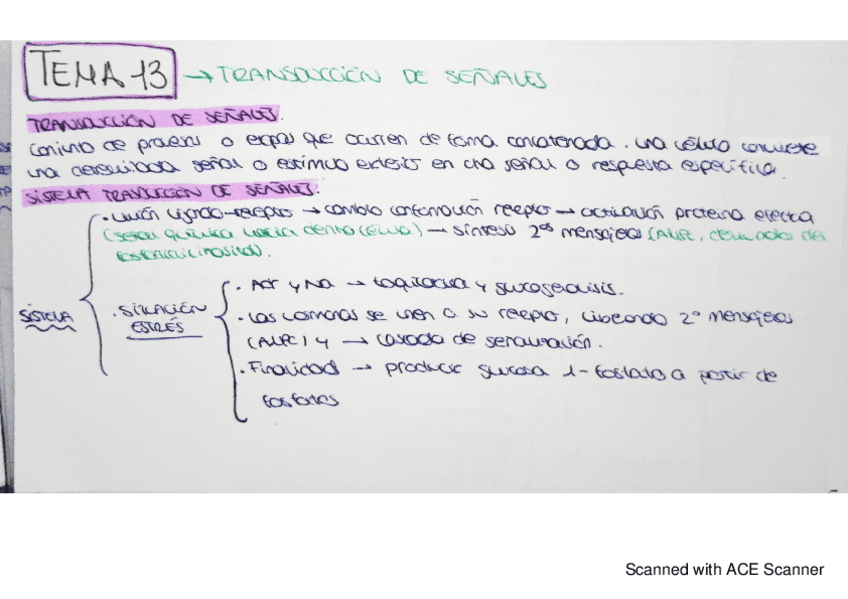 TEMA 13 → TRANSDUCCIÓN DE SEÑALES
TRANSDUCCIÓN DE SEÑALES.
Conjunto de procesos o etapas que ocurren de forma concatenada. Una célula convierte
una determinada señal o estímulo exterior en otra señal o respuesta específica.
SISTEMA TRANSDUCCIÓN DE SEÑALES.
· Unión ligando-receptor → cambio conformación receptor → activación proteína efectora
(señal química hacia dentro célula) → síntesis 2os mensajeros (AMPc, derivados del
fosfatidilinositol).
SISTEMA
· SITUACIÓN ESTRÉS
· y NA → taquicardia y glucogenolisis.
· Las hormonas se unen a su receptor, liberando 2º mensajeros
(AMPc) y → cascada de señalización.
· Finalidad → producir glucosa 1-fosfato a partir de
fosfatos
Scanned with ACE Scanner